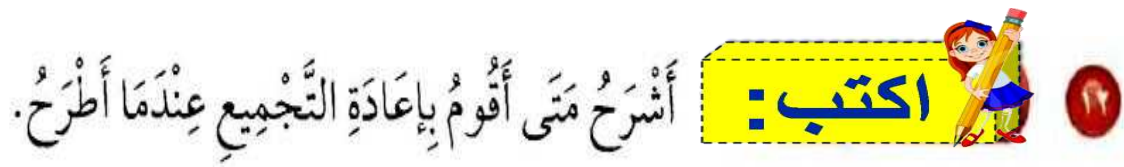 ١٢ اكتب: أَشْرَحُ مَتَى أَقُومُ بِإِعَادَةِ التَّجْمِيعِ عِنْدَمَا أَطْرَحُ.